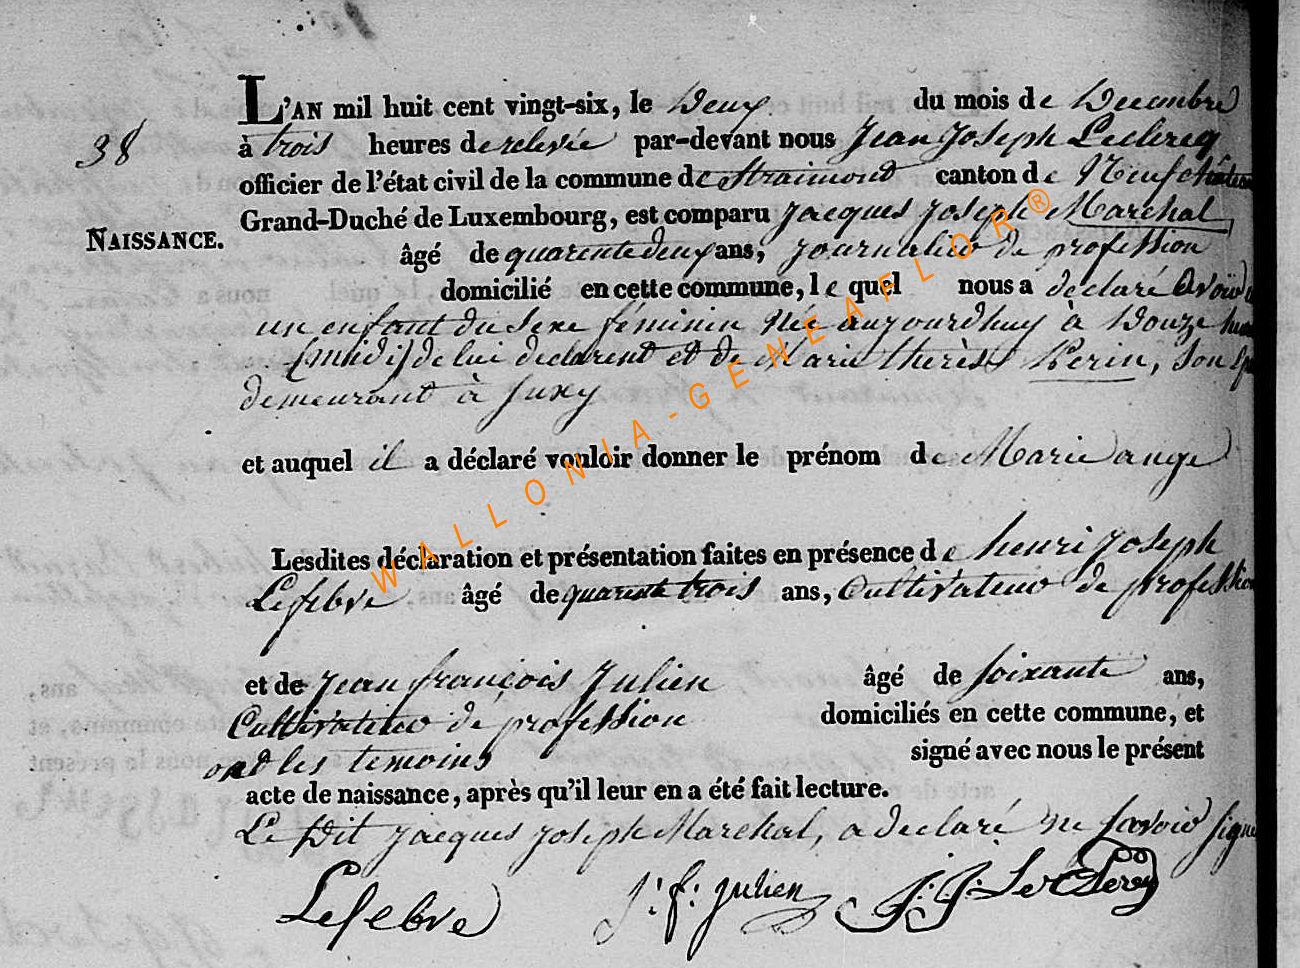 L'AN mil huit cent vingt-six, le Deux du mois de Decembre
38
à trois heures de relevée par-devant nous Jean Joseph Leclercq
officier de l'état civil de la commune de Straimont canton de Neufchâteau
Grand-Duché de Luxembourg, est comparu Jacques Joseph Marchal,
NAISSANCE.
âgé de quarente deux ans, Journalier de profession
domicilié en cette commune, le quel nous a déclaré avoir
un enfant du sexe féminin Née aujourdhuy à Douze
(midi) de lui declarent et de Marie therèse Perin, son
demeurant à Suxy
et auquel il a déclaré vouloir donner le prénom de Marie ange
Lesdites déclaration et présentation faites en présence de henri Joseph
Lefebvre âgé de quarente trois ans, Cultivateur de profession
et de Jean françois Julien âgé de soixante ans,
Cultivateur de profession domiciliés en cette commune, et
ont les temoins signé avec nous le présent
acte de naissance, après qu'il leur en a été fait lecture.
Le Dit Jacques Joseph Marchal, a declaré ne savoir signer
Lefebvre J: f: Julien J: J: Leclercq
WALLONIA-GENEAFLOR®